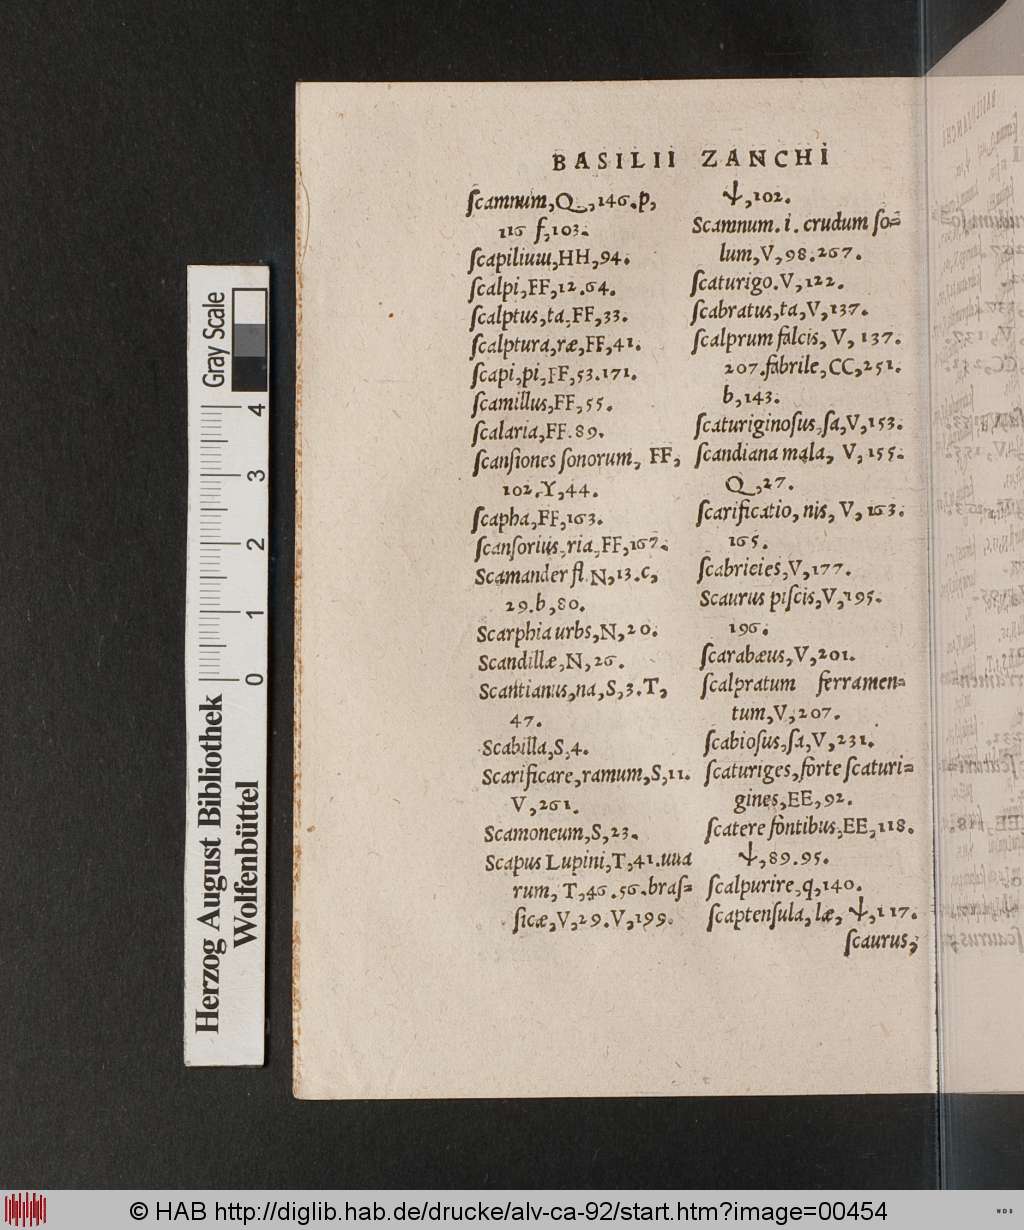 BASILII ZANCHI
ſcamnum, Q, 146. p,
116 f, 103.
ſcapilium, HH, 94.
ſcalpi, FF, 12. 64.
ſcalptus, ta, FF, 33.
ſcalptura, ræ, FF, 41.
ſcapi, pi, FF, 53. 171.
ſcamillus, FF, 55.
ſcalaria, FF. 89.
ſcanſiones ſonorum, FF,
102. Y, 44.
ſcapha, FF, 163.
ſcanſorius, ria, FF, 167.
Scamander fl. N, 13. c,
29. b, 80.
Scarphia urbs, N, 20.
Scandillæ, N, 26.
Scantianus, na, S, 3. T,
47.
Scabilla, S, 4.
Scarificare, ramum, S, 11.
V, 261.
Scamoneum, S, 23.
Scapus Lupini, T, 41. uua
rum, T, 46. 56. braſ=
ſicæ, V, 29. V, 199.
ↆ, 102.
Scamnum. i. crudum ſo=
lum, V, 98. 267.
ſcaturigo. V, 122.
ſcabratus, ta, V, 137.
ſcalprum falcis, V, 137.
207. fabrile, CC, 251.
b, 143.
ſcaturiginoſus, ſa, V, 153.
ſcandiana mala, V, 155.
Q, 27.
ſcarificatio, nis, V, 163.
165.
ſcabricies, V, 177.
Scaurus piſcis, V, 195.
196.
ſcarabæus, V, 201.
ſcalpratum ferramen=
tum, V, 207.
ſcabioſus, ſa, V, 231.
ſcaturiges, forte ſcaturi=
gines, EE, 92.
ſcatere fontibus, EE, 118.
ↆ, 89. 95.
ſcalpurire, q, 140.
ſcaptenſula, læ, ↆ, 117.
ſcaurus,
Gray Scale
0 1 2 3 4
Herzog August Bibliothek
Wolfenbüttel
© HAB http://diglib.hab.de/drucke/alv-ca-92/start.htm?image=00454